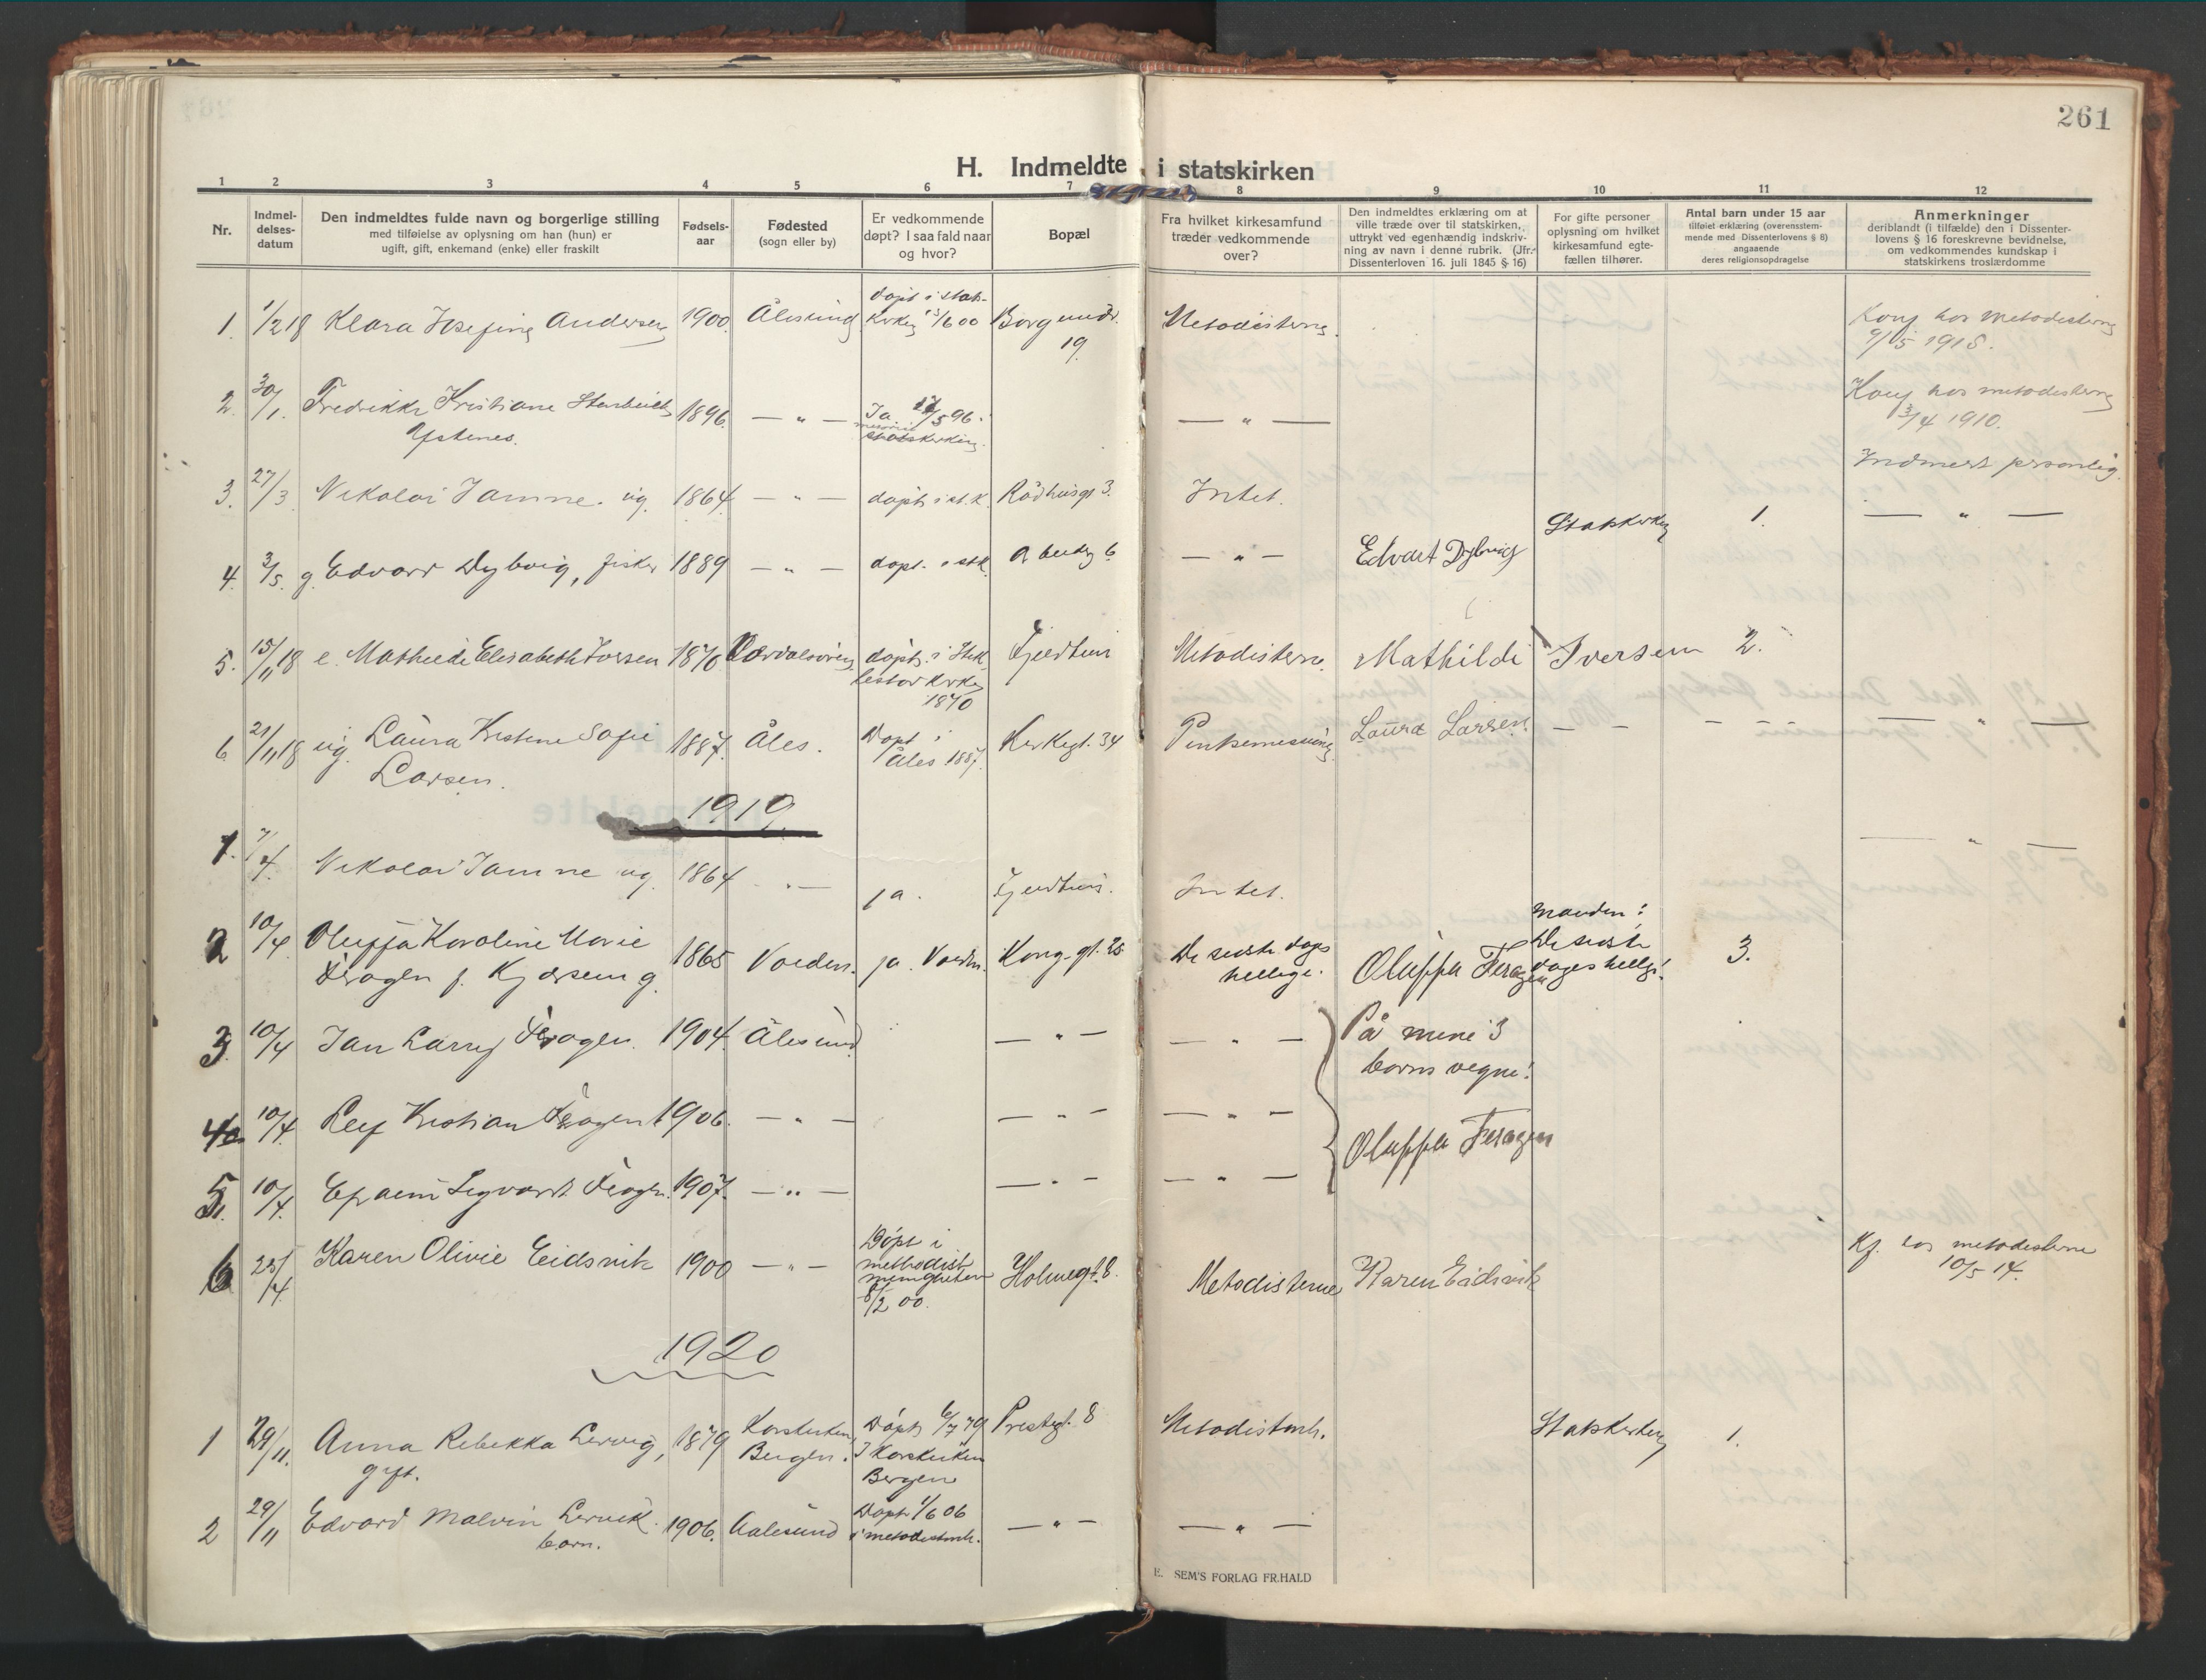 261
H. Indmeldte i statskirken
1 2 3 4 5 6 7 8 9 10 11 12
Nr.
Indmel-
delses-
datum
Den indmeldtes fulde navn og borgerlige stilling
med tilføielse av oplysning om han (hun) er
ugift, gift, enkemand (enke) eller fraskilt
Fødsels-
aar
Fødested
(sogn eller by)
Er vedkommende
døpt? I saa fald naar
og hvor?
Bopæl
Fra hvilket kirkesamfund
træder vedkommende
over?
Den indmeldtes erklæring om at
ville træde over til statskirken,
uttrykt ved egenhændig indskriv-
ning av navn i denne rubrik. (Jfr.
Dissenterloven 16. juli 1845 § 16)
For gifte personer
oplysning om hvilket
kirkesamfund egte-
fællen tilhører.
Antal barn under 15 aar
tilføiet erklæring (overensstem-
mende med Dissenterlovens § 8)
angaaende
deres religionsopdragelse
Anmerkninger
deriblandt (i tilfælde) den i Dissenter-
lovens § 16 foreskrevne bevidnelse,
om vedkommendes kundskap i
statskirkens troslærdomme
1. 1/2 18 Klara Josefine Andersen 1900. Ålesund
døpt i stats-
kirken 13/6 00
Borgundv.
19.
Metodisterne.
Konf hos Metodisterne
9/5 1915.
2. 30/1. Fredrikke Kristiane
Ystenes.
1896. — " —
Ja 5 96.
statskirken.
— " —
Konf hos metodisterne
3/4 1910.
3. 27/3 Nikolai Jamne. ug. 1864 — " — døpt i st.k. Rådhusgt 3. Intet.
Indmeldt personlig.
4. 3/5 g. Edvard Dybvig, fisker 1889 — " — døpt i stk. 6 — " — Edvart Dybvig Statskirken 1. — " —
5. 15/11 18 e. Mathilde Elisabeth Iversen 1870 Verdalsøren
døpt i Stk.
kirke
1870
Fjeldheim Metodisterne. Mathilde Iversen 2.
6 21/11 18 ug. Laura Kristine Sofie
Larsen.
1887. Åles.
Døpt i
Åles 1887.
Kirkegt. 34 Pinsemenigh. Laura Larsen. — — — " — — " —
1919
1. 7/4. Nikolai Jamne ug. 1864 — " — ja. Fjeldheim. Intet. — " —
2 10/4. Oluffa Karoline Marie
Feragen f. Kjørsem g.
1865 Volden. ja. Volden. Kong. gt. 25
De siste dages
hellige.
Oluffa Feragen
Manden:
De siste
dages hellige!
3.
3. 10/4 Jan Harry Feragen. 1904. Ålesund. — " — — " —
På mine 3
barns vegne!
4. 10/4. Leif Kristian Feragen 1906. — " — — " — — " —
Oluffa Feragen
5. 10/4. Efraim Sigvard Feragen. 1907. — " — — " — — " —
6 25/4 Karen Olivie Eidsvik 1900 — " —
Døpt i
methodist
menigheten
8/2 00.
Holmegt. 8. Metodisterne Karen Eidsvik
Kf. hos metodisterne
10/5 14.
1920
1 29/11. Anna Rebekka Lervig,
gift.
1879
Korskirken
Bergen.
Døpt 6/7 79
I Korskirken
Bergen
Prestegt. 8 Metodistmh. Statskirken 1.
2 29/11 Edvard Malvin Lervik.
barn.
1906. Aalesund
Døpt 1/6 06
i metodistmh.
— " — — " —
E. SEM'S FORLAG FR.HALD